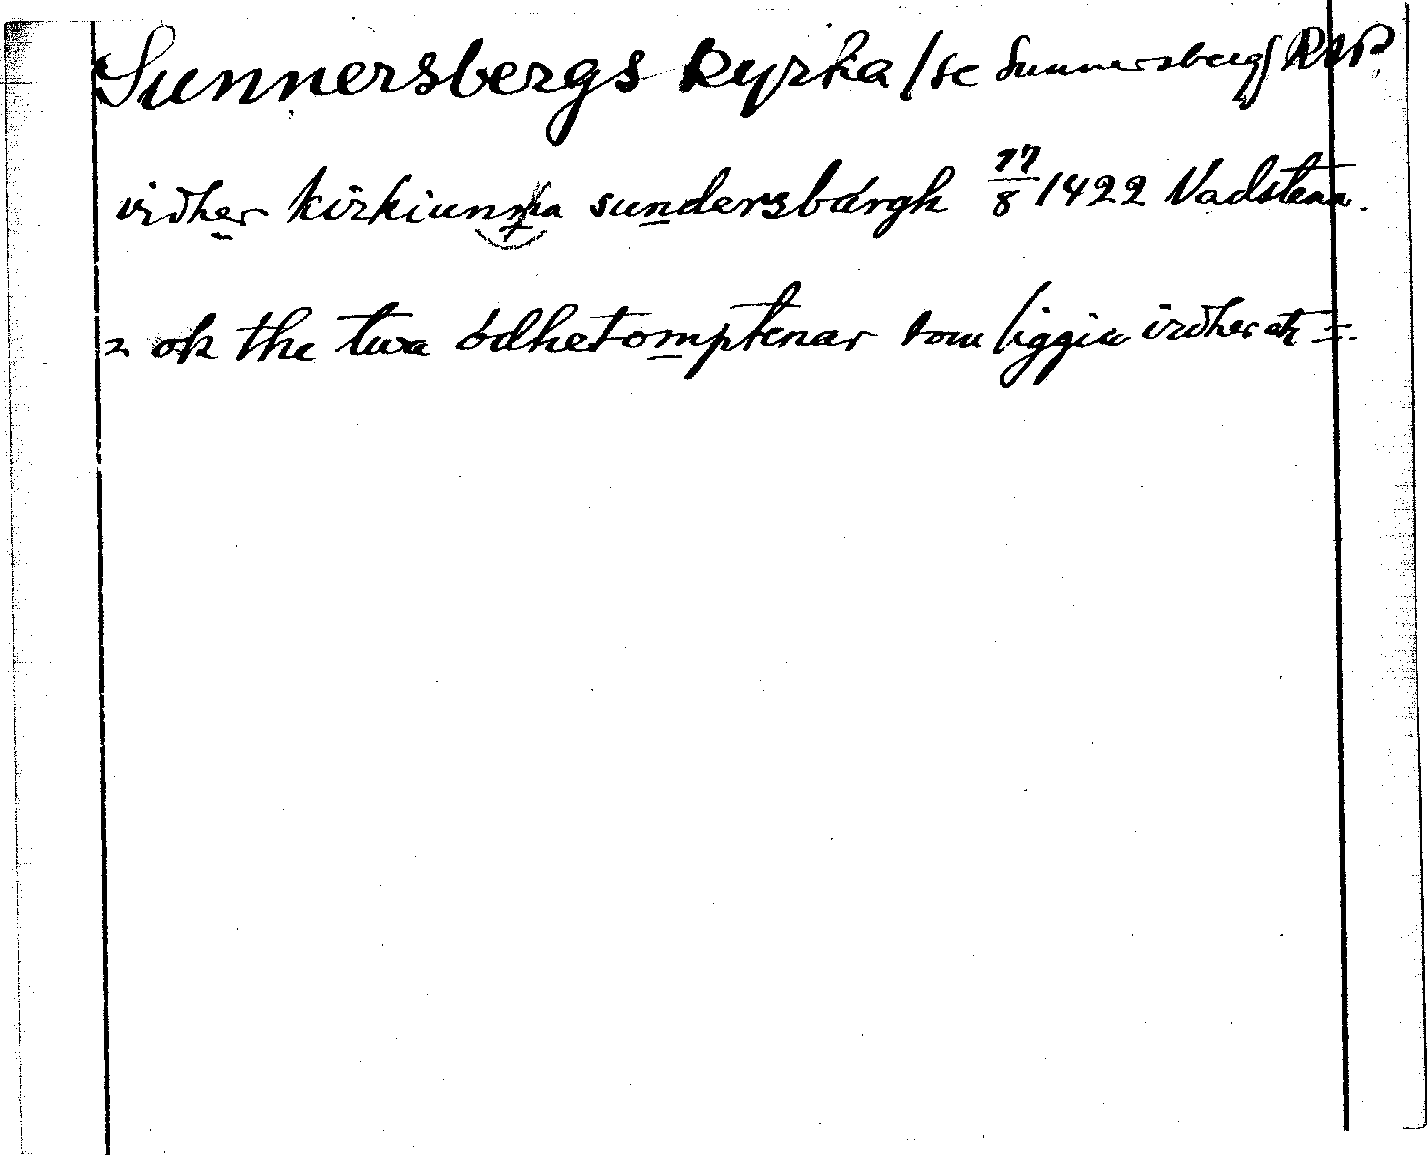 Sunnersbergs kyrka /se Sunnersberg/ RAP
vidher kirkiunna sundersbárgh 17/8 1422 Vadstena.
= ok the twa ódhetomptenar som liggia vidher etc =.